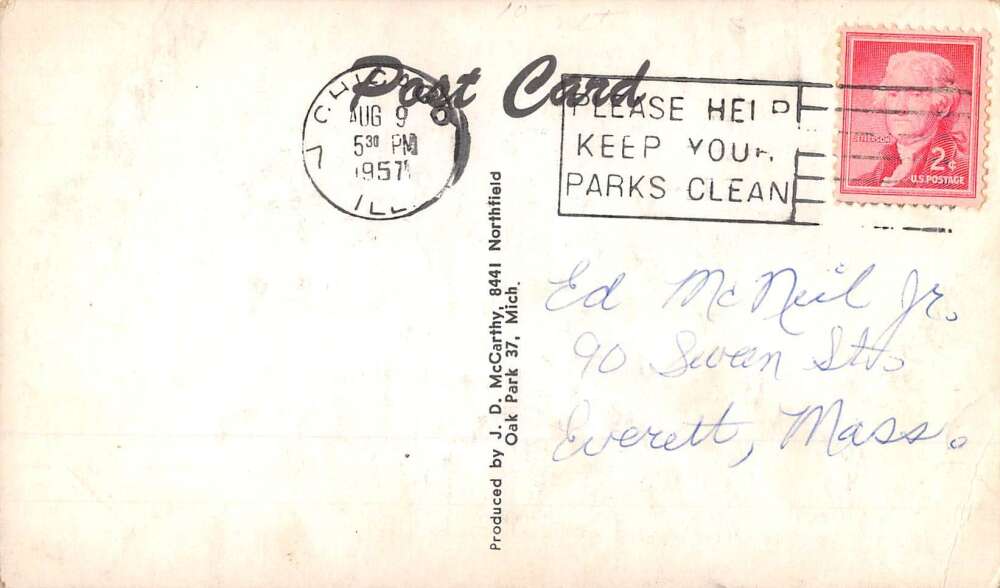 Post Card
CHICAGO
7
AUG 9
5 30 PM
1957
ILL.
PLEASE HELP
KEEP YOUR
PARKS CLEAN
JEFFERSON
2¢
U.S. POSTAGE
Produced by J. D. McCarthy, 8441 Northfield
Oak Park 37, Mich.
Ed McNeil Jr.
90 Swan St.
Everett, Mass.